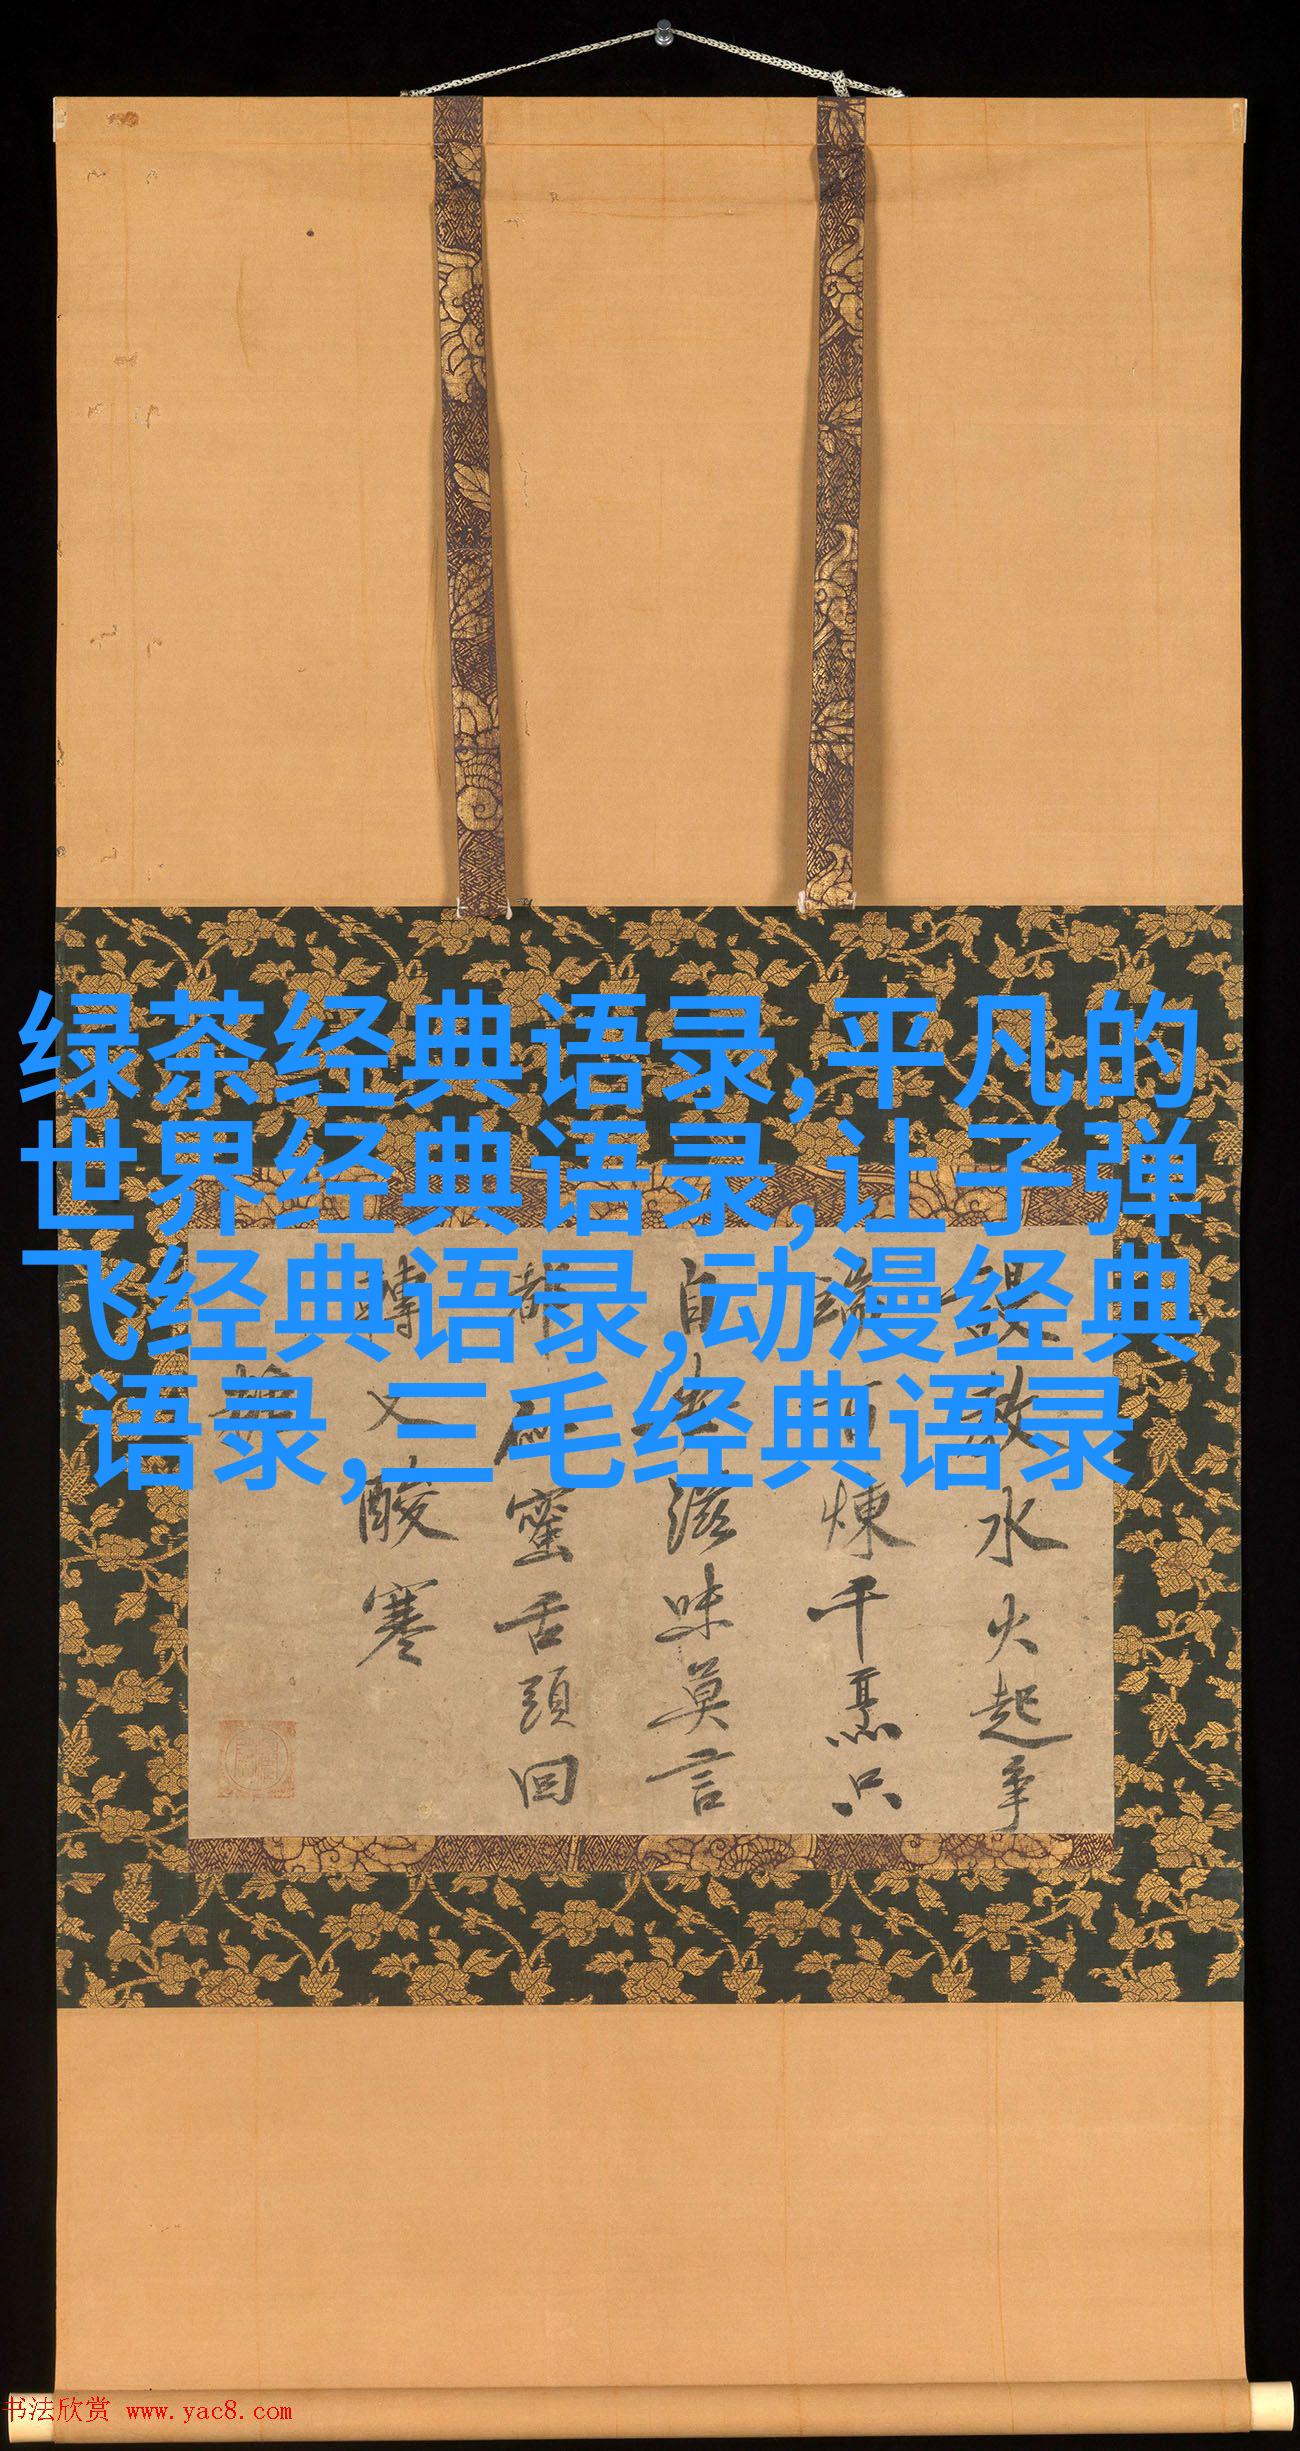 绿茶经典语录,平凡的
世界经典语录,让子弹
飞经典语录,动漫经典
语录,三毛经典语录
誤教水火起爭
端百煉千烹只
自滋味莫言
都蜜舌頭回
轉又酸寒
书法欣赏 www.yac8.com